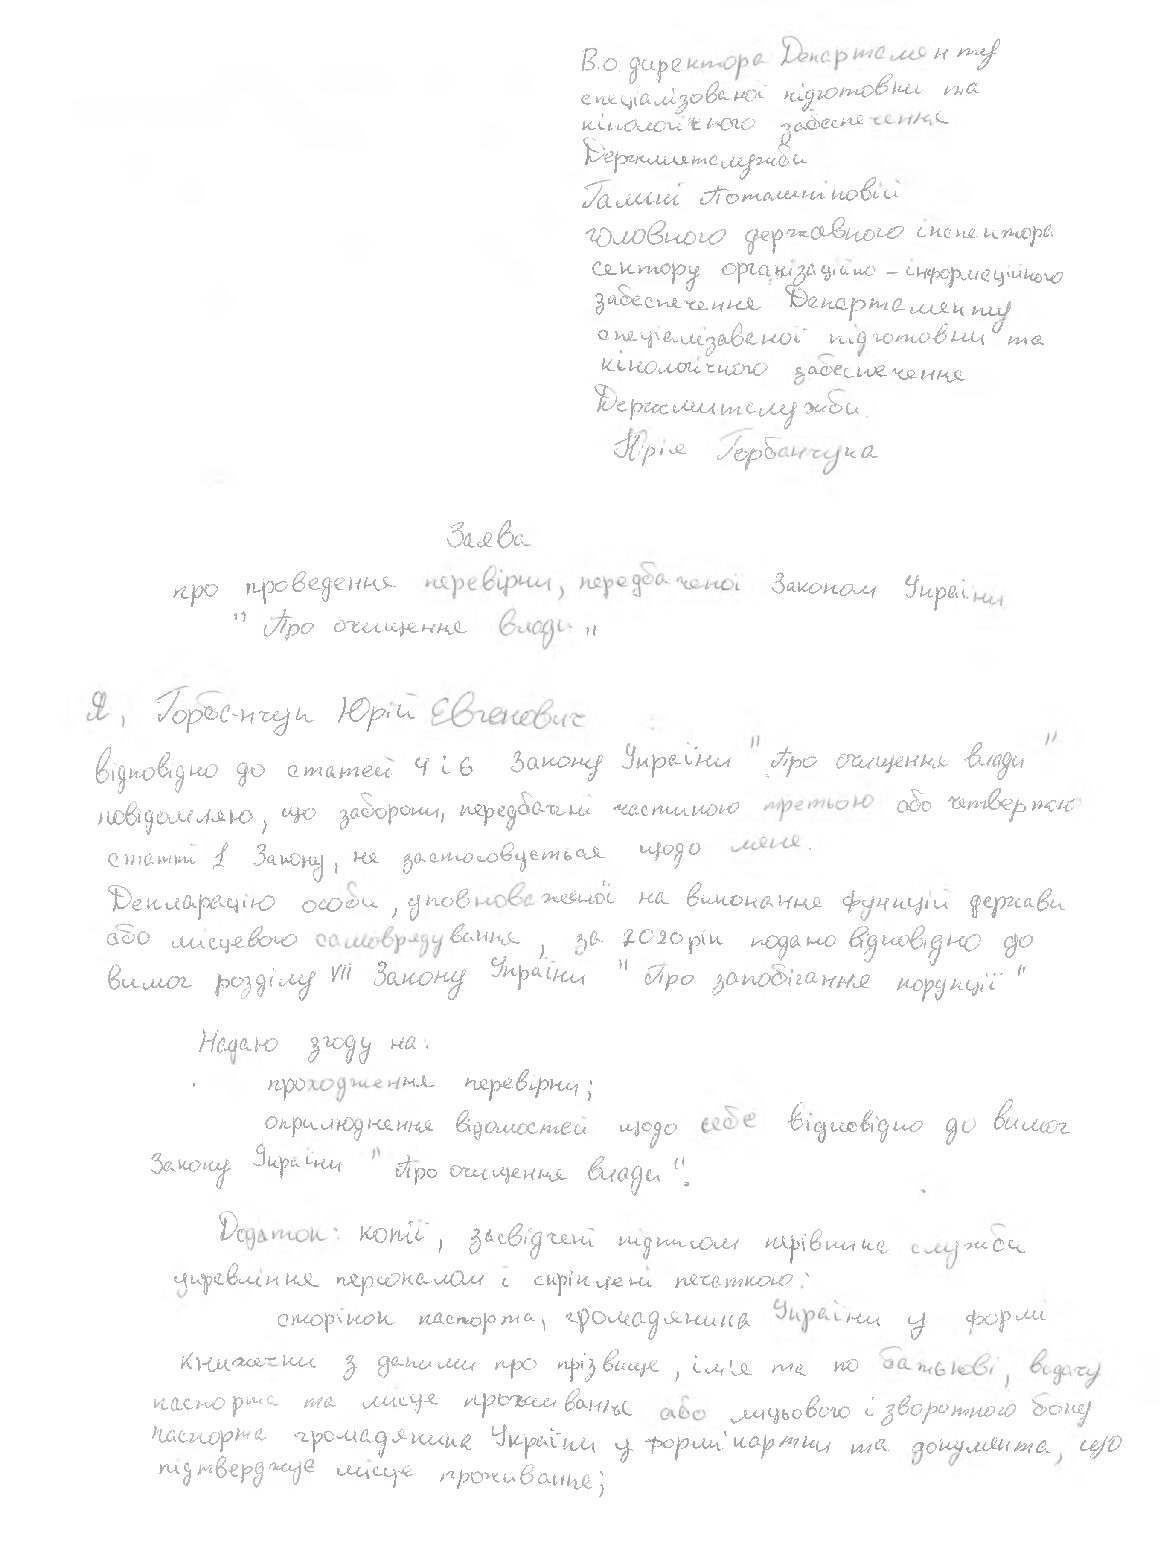 В.о. директора Департаменту
спеціалізованої підготовки та
кінологічного забезпечення
Держмитслужби
Галині Поташніковій
головного державного інспектора
сектору організаційно - інформаційного
забезпечення Департаменту
спеціалізованої підготовки та
кінологічного забезпечення
Держмитслужби.
Юрія Горбанчука
Заява
про проведення перевірки, передбаченої Законом України
"Про очищення влади"
Я, Горбанчук Юрій Євгенович
відповідно до статей 4 і 6 Закону України "Про очищення влади"
повідомляю, що заборони, передбачені частиною третьою або четвертою
статті 1 Закону, не застосовується щодо мене.
Декларацію особи, уповноваженої на виконання функцій держави
або місцевого самоврядування, за 2020 рік подано відповідно до
вимог розділу VII Закону України "Про запобігання корупції"
Надаю згоду на:
проходження перевірки;
оприлюднення відомостей щодо себе відповідно до вимог
Закону України "Про очищення влади".
Додаток: копії, засвідчені підписом керівника служби
управління персоналом і скріплені печаткою:
сторінок паспорта, громадянина України у формі
книжечки з даними про прізвище, ім'я та по батькові, видачу
паспорта та місце проживання або лицьового і зворотного боку
паспорта громадянина України у формі картки та документа, що
підтверджує місце проживання;